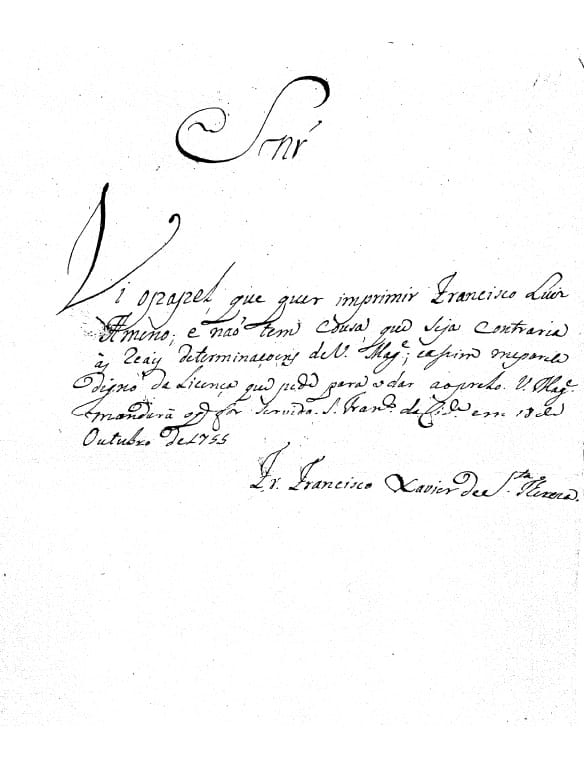 Snr̃
Vi o papel, que quer imprimir Francisco Luiz
Ameno; e naõ tem cousa, que seja contraria
às Reays determinaçoens de V. Mag.e; e assim me parece
digno da Licença que pede para o dar ao prelo. V. Mag.e
mandarà o q for servido. S. Fran.co da Cid.e em 18 de
Outubro de 1755
Fr. Francisco Xavier de S.ta Tereza.